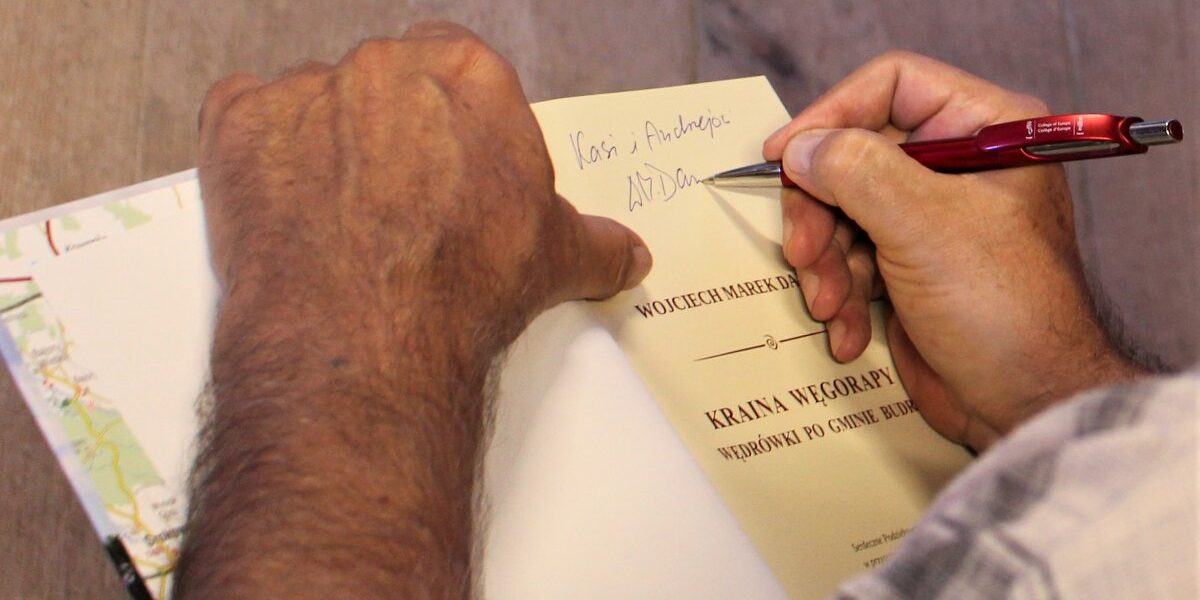 Kasi i Andrzejowi
WM.Dar
WOJCIECH MAREK DA
KRAINA WĘGORAPY
WĘDRÓWKI PO GMINIE BUDR
Serdeczne Podzię
w przy
College of Europe
Collège d'Europe